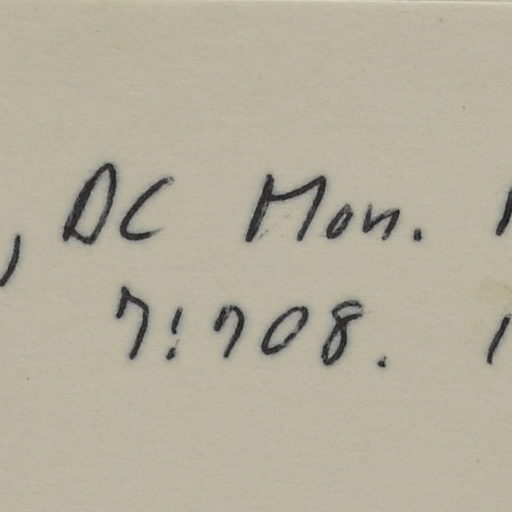 , DC Mon.
7:708.